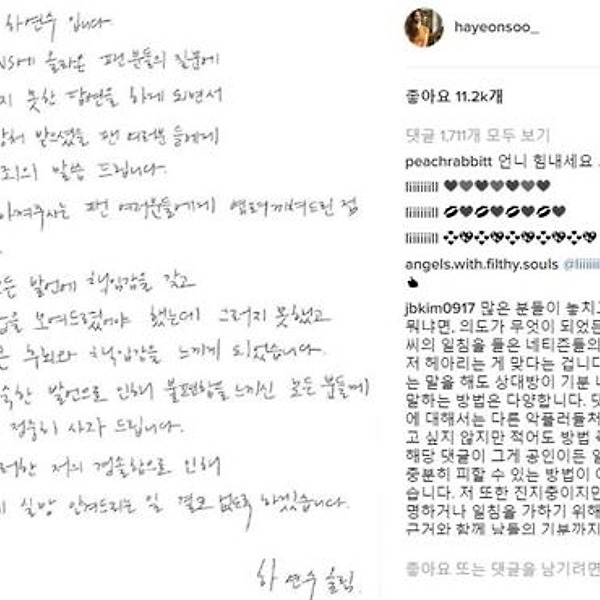 하연수 입니다.
NS에 올라온 팬분들의 질문에
지 못한 답변을 하게 되면서
상처 받으셨을 팬 여러분들에게
죄의 말씀 드립니다.
아껴주시는 팬 여러분들에게 염려끼쳐드린 점
든 발언에 책임감을 갖고
습을 보여드렸어야 했는데 그러지 못했고
큰 후회와 책임감을 느끼게 되었습니다.
숙한 발언으로 인해 불편함을 느끼신 모든 분들께
정중히 사과 드립니다.
러한 저의 경솔함으로 인해
실망 안겨드리는 일 결코 없도록 하겠습니다.
하연수 올림.
hayeonsoo_
좋아요 11.2k개
댓글 1,711개 모두 보기
peachrabbitt 언니 힘내세요
liiiiiiill 🖤🖤🖤🖤🖤🖤🖤
liiiiiiill 💋🖤💋🖤💋🖤💋🖤
liiiiiiill
angels.with.filthy.souls @liiiiii
jbkim0917 많은 분들이 놓치고
뭐냐면, 의도가 무엇이 되었든
씨의 일침을 들은 네티즌들의
저 헤아리는 게 맞다는 겁니다
는 말을 해도 상대방이 기분 나
말하는 방법은 다양합니다. 댓
에 대해서는 다른 악플러들처
고 싶지 않지만 적어도 방법
해당 댓글이 그게 공인이든 일
중분히 피할 수 있는 방법이
습니다. 저 또한 진지충이지만
명하거나 일침을 가하기 위해
근거와 함께 남들의 기분까지
좋아요 또는 댓글을 남기려면